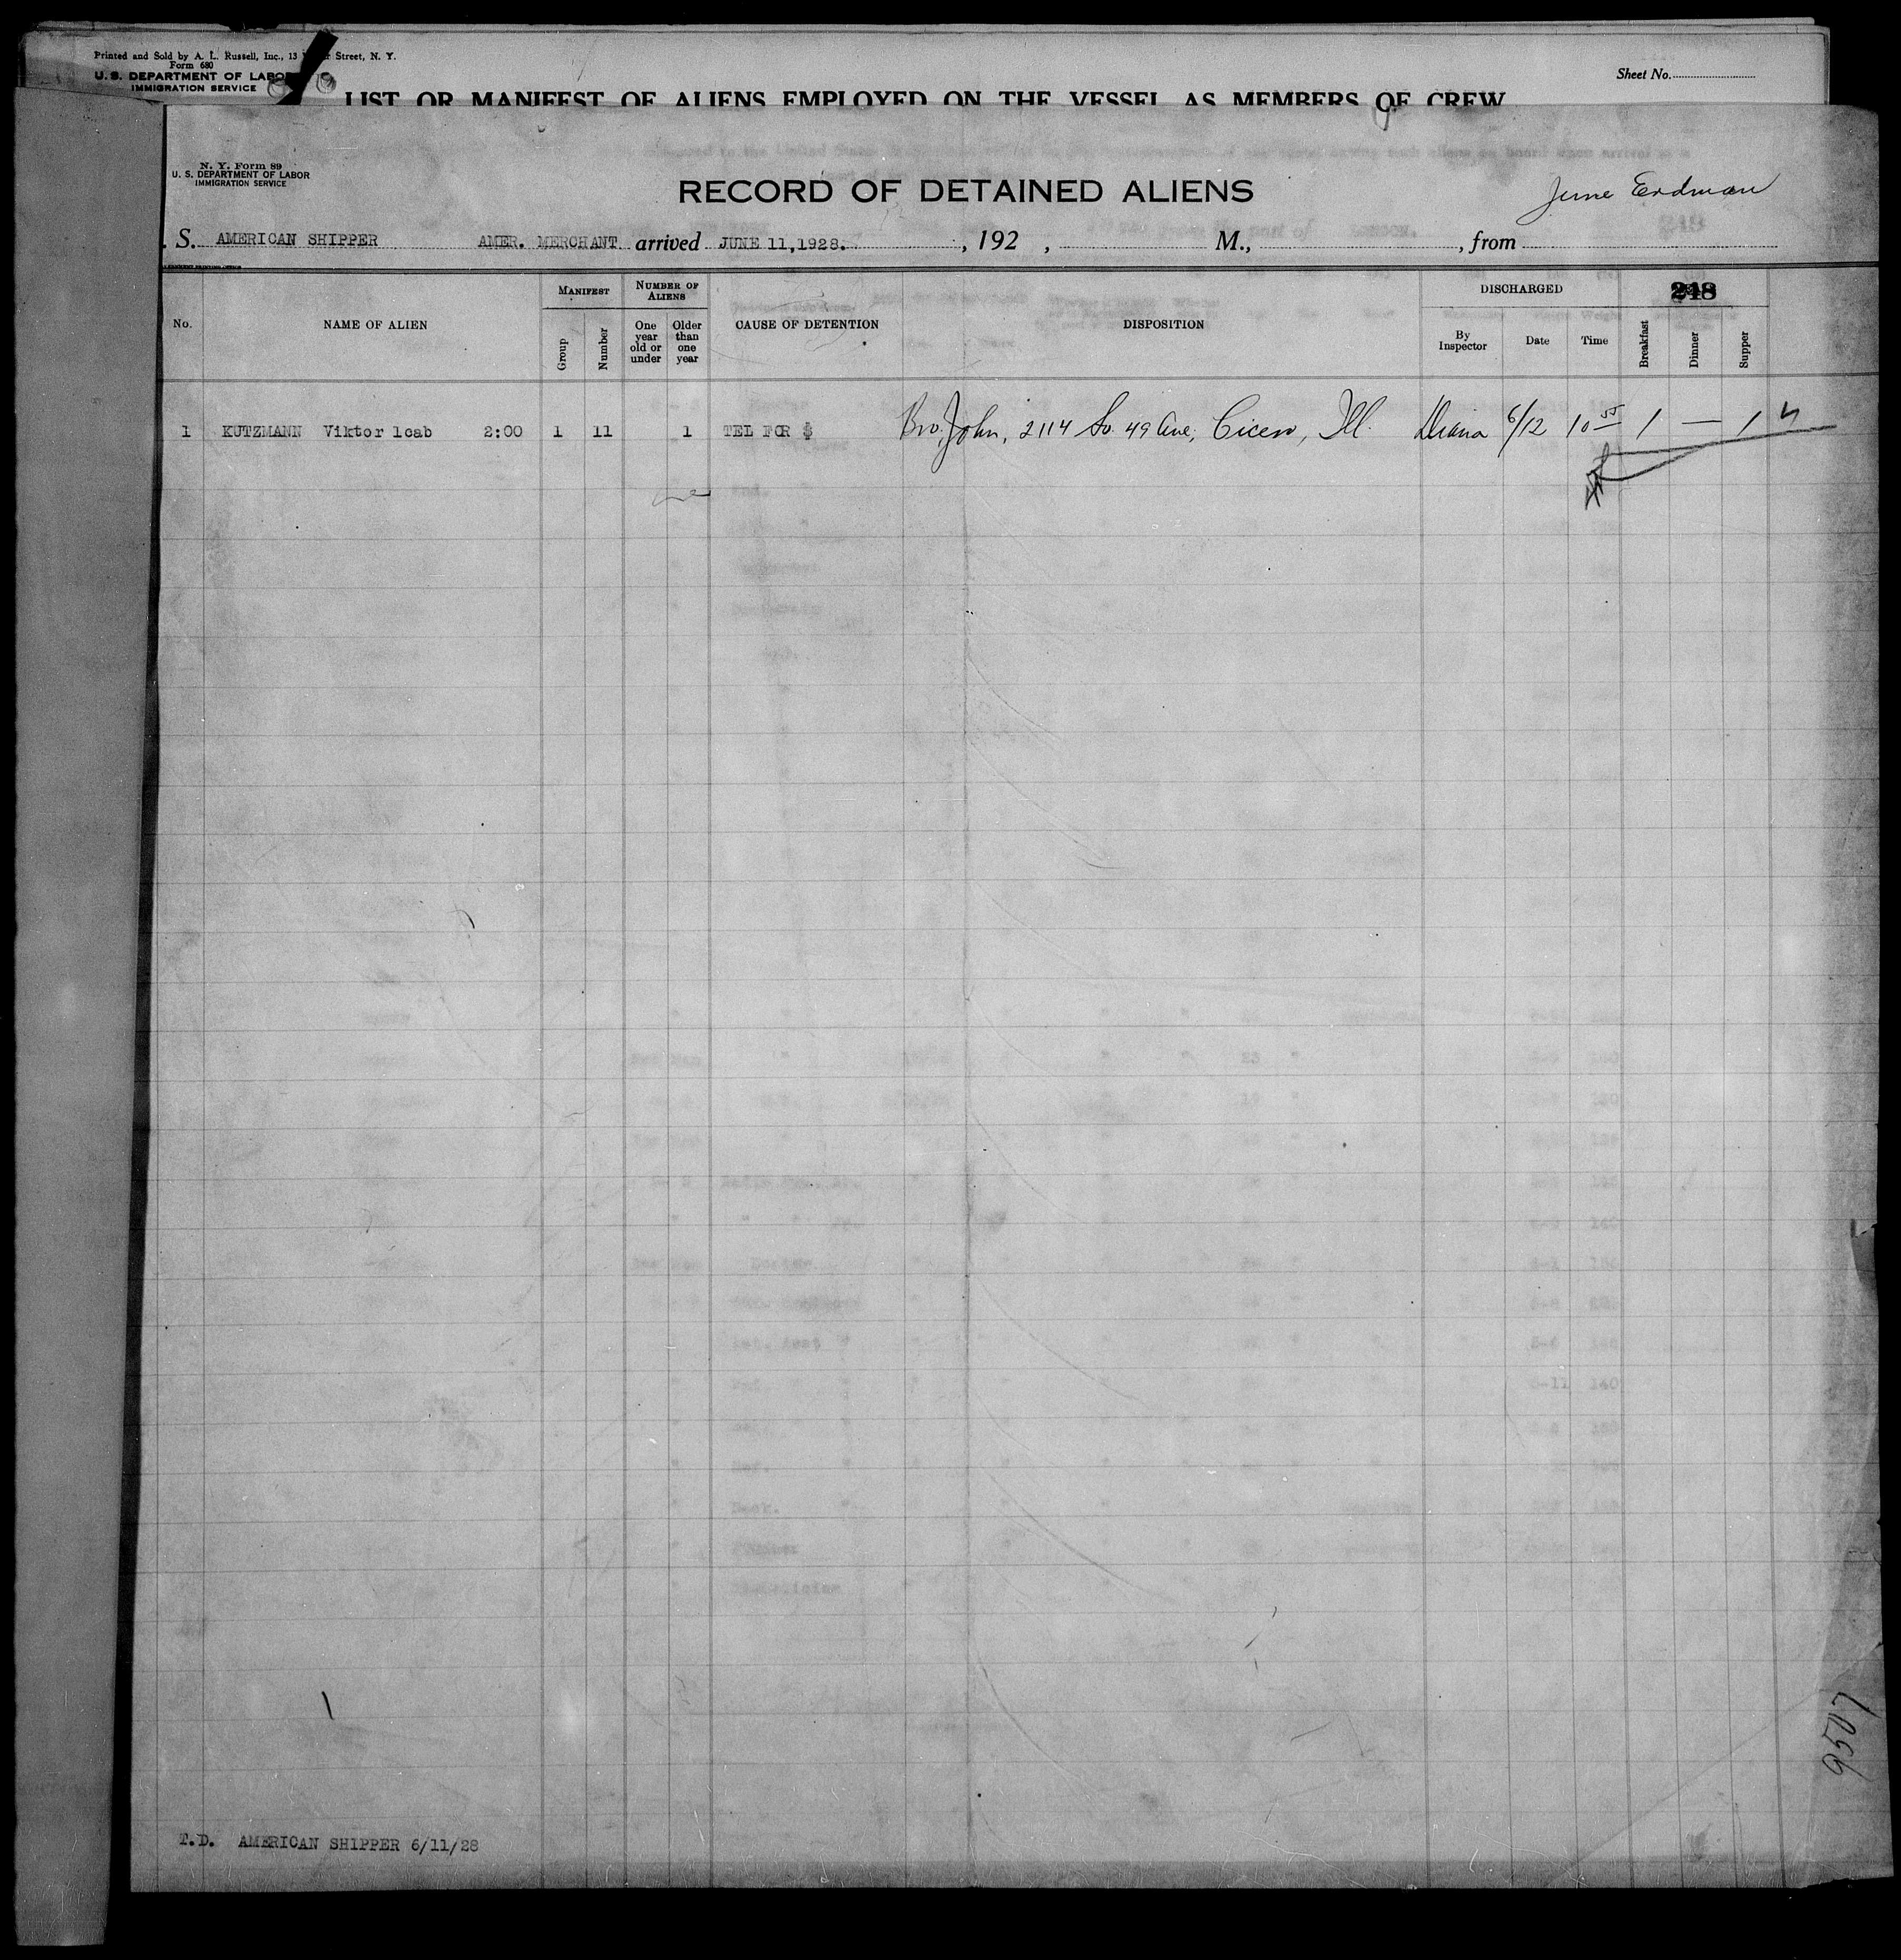 Printed and Sold by A. L. Russell, Inc., 13 Street, N. Y.
Form 680
U. S. DEPARTMENT OF LABOR
IMMIGRATION SERVICE
Sheet No.
LIST OR MANIFEST OF ALIENS EMPLOYED ON THE VESSEL AS MEMBERS OF CREW
N. Y. Form 89
U. S. DEPARTMENT OF LABOR
IMMIGRATION SERVICE
RECORD OF DETAINED ALIENS
June Erdman
. S. AMERICAN SHIPPER AMER. MERCHANT arrived JUNE 11,1928. , 192 , M., , from
No. NAME OF ALIEN MANIFEST Group Number NUMBER OF ALIENS One year old or under Older than one year CAUSE OF DETENTION DISPOSITION DISCHARGED By Inspector Date Time 248 Breakfast Dinner Supper
1 KUTZMANN Viktor 1cab 2:00 1 11 1 TEL FOR $ Bro. John, 2114 So. 49 Ave, Cicero, Ill. Diana 6/12 10 55 1 — 1
6507
T.D. AMERICAN SHIPPER 6/11/28